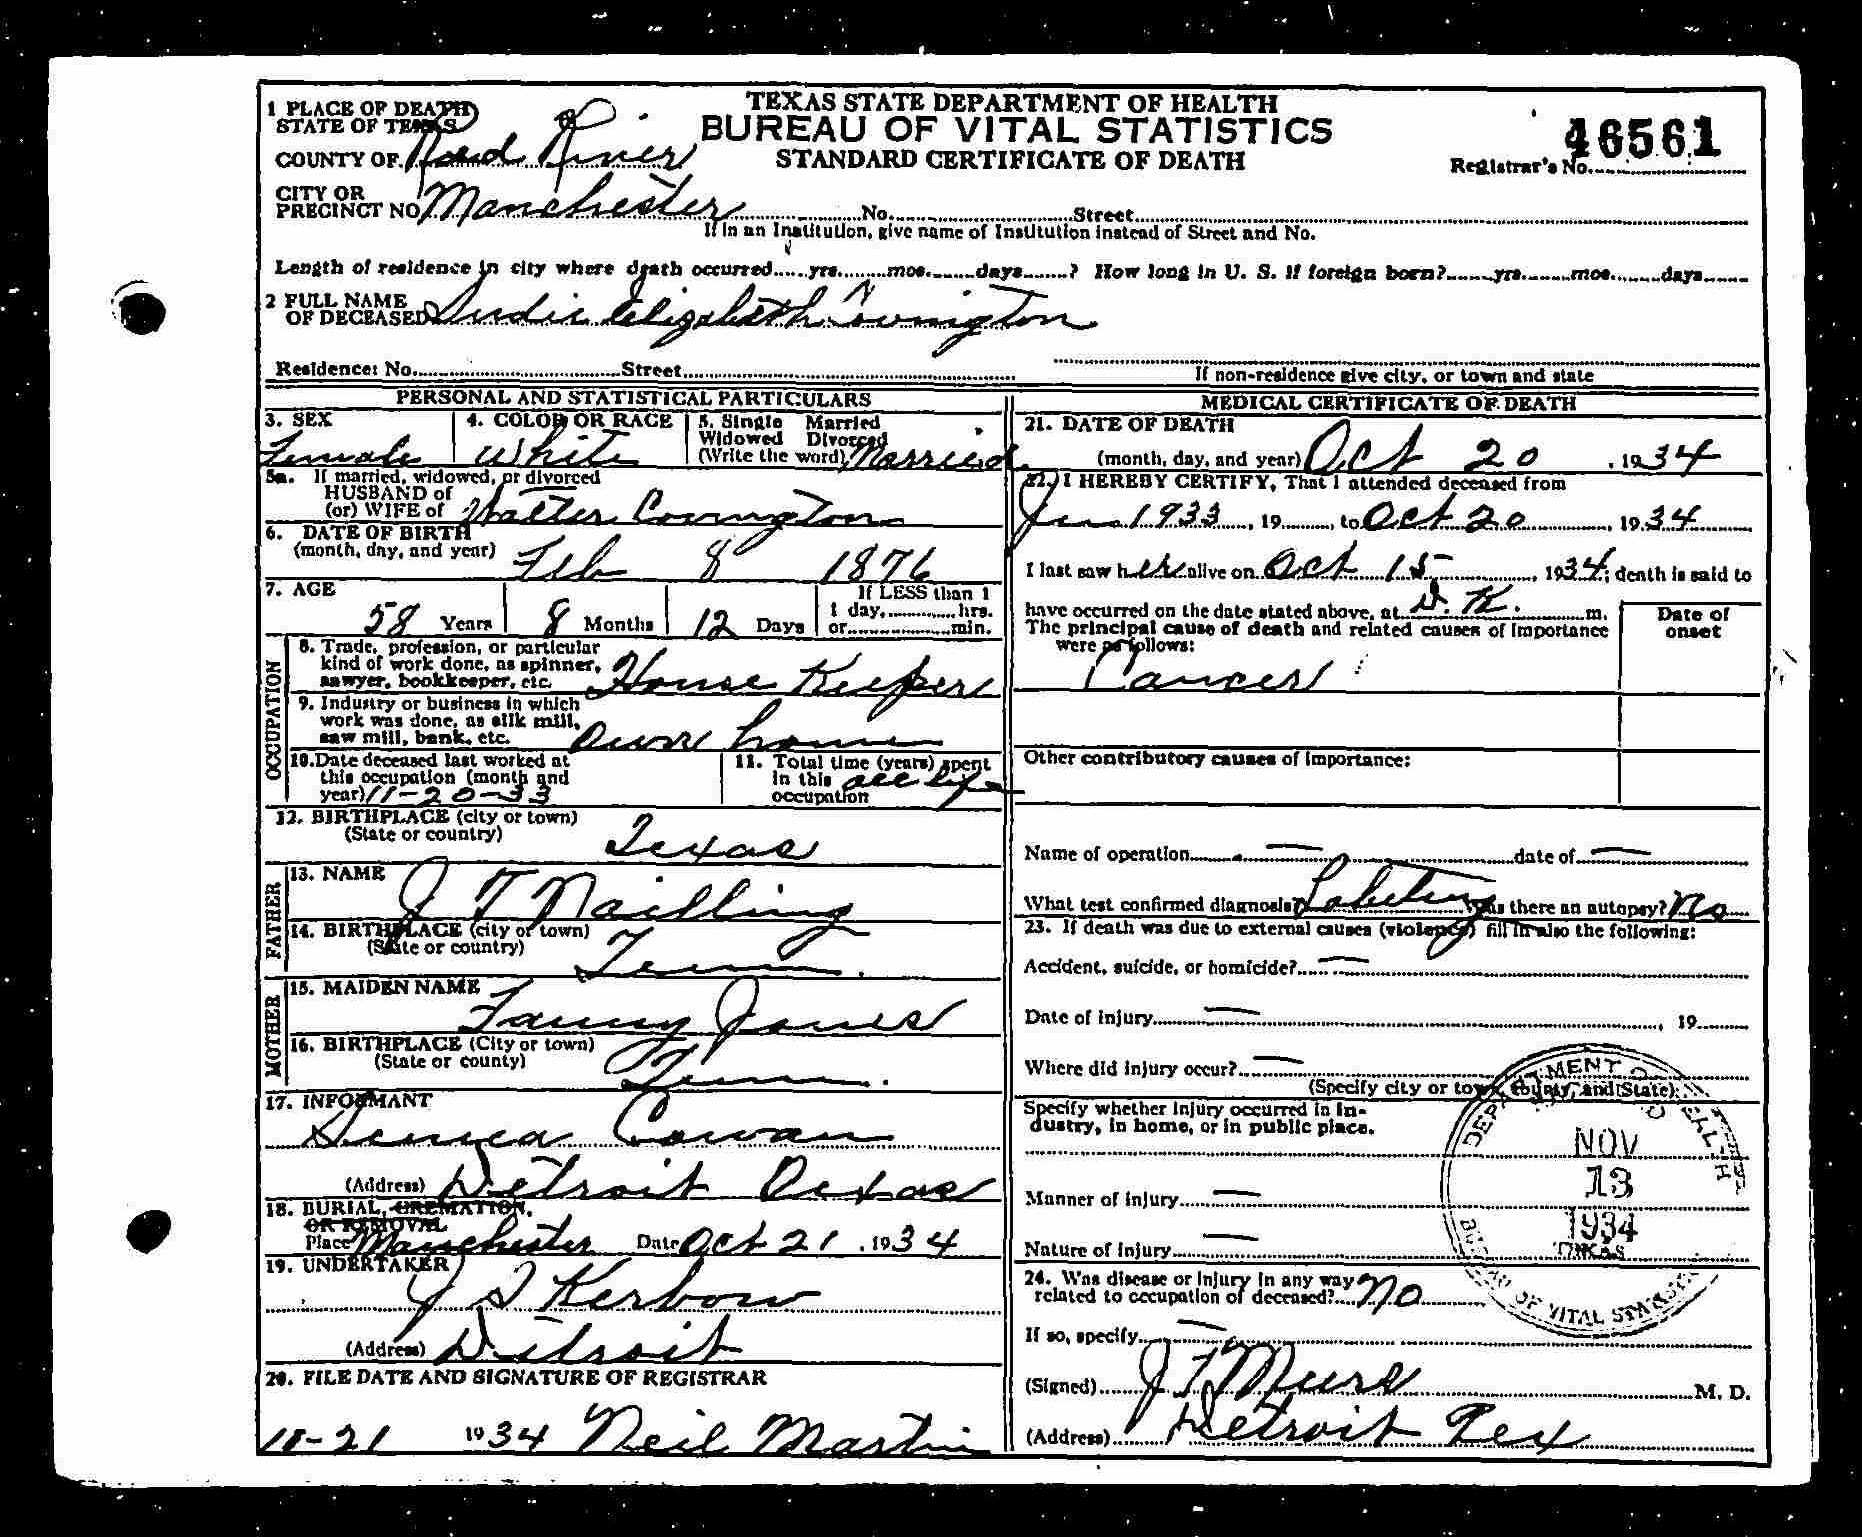 TEXAS STATE DEPARTMENT OF HEALTH
BUREAU OF VITAL STATISTICS
STANDARD CERTIFICATE OF DEATH
46561
Registrar's No.
1 PLACE OF DEATH
STATE OF TEXAS
COUNTY OF Red River
CITY OR
PRECINCT NO Manchester No. Street
If in an Institution, give name of Institution instead of Street and No.
Length of residence in city where death occurred yrs. mos. days ? How long in U. S. if foreign born? yrs. mos. days
2 FULL NAME
OF DECEASED Sudie Elizabeth Covington
Residence: No. Street
If non-residence give city, or town and state
PERSONAL AND STATISTICAL PARTICULARS
3. SEX
Female
4. COLOR OR RACE
White
5. Single Married
Widowed Divorced
(Write the word) Married
5a. If married, widowed, or divorced
HUSBAND of
(or) WIFE of Walter Covington
6. DATE OF BIRTH
(month, day, and year) Feb 8 1876
7. AGE
58 Years 8 Months 12 Days
If LESS than 1
1 day, hrs.
or min.
OCCUPATION
8. Trade, profession, or particular
kind of work done, as spinner,
sawyer, bookkeeper, etc. House Keeper
9. Industry or business in which
work was done, as silk mill,
saw mill, bank, etc. Own home
10. Date deceased last worked at
this occupation (month and
year) 11-20-33
11. Total time (years) spent
in this all life
occupation
12. BIRTHPLACE (city or town)
(State or country) Texas
FATHER
13. NAME
J T Nailling
14. BIRTHPLACE (city or town)
(State or country) Tenn.
MOTHER
15. MAIDEN NAME
Fanny Jones
16. BIRTHPLACE (City or town)
(State or county) Tenn.
17. INFORMANT
Seneca Cowan
(Address) Detroit Texas
18. BURIAL, CREMATION,
OR REMOVAL
Place Manchester Date Oct 21, 1934
19. UNDERTAKER
J S Kerbow
(Address) Detroit
20. FILE DATE AND SIGNATURE OF REGISTRAR
10-21 1934 Neil Martin
MEDICAL CERTIFICATE OF DEATH
21. DATE OF DEATH
(month, day, and year) Oct 20, 1934
22. I HEREBY CERTIFY, That I attended deceased from
1933, 19 , to Oct 20, 1934
I last saw her alive on Oct 15, 1934; death is said to
have occurred on the date stated above, at D. K. m.
The principal cause of death and related causes of importance
were as follows:
Date of
onset
Cancer
Other contributory causes of importance:
Name of operation — date of —
What test confirmed diagnosis? Was there an autopsy? No
23. If death was due to external causes (violence) fill in also the following:
Accident, suicide, or homicide? —
Date of injury — , 19
Where did injury occur? —
(Specify city or town, county, and State)
Specify whether injury occurred in in-
dustry, in home, or in public place.
Manner of injury —
Nature of injury —
24. Was disease or injury in any way
related to occupation of deceased? No
If so, specify —
(Signed) J T M. D.
(Address) Detroit Tex
DEPARTMENT OF HEALTH
NOV
13
1934
TEXAS
BUREAU OF VITAL STATISTICS